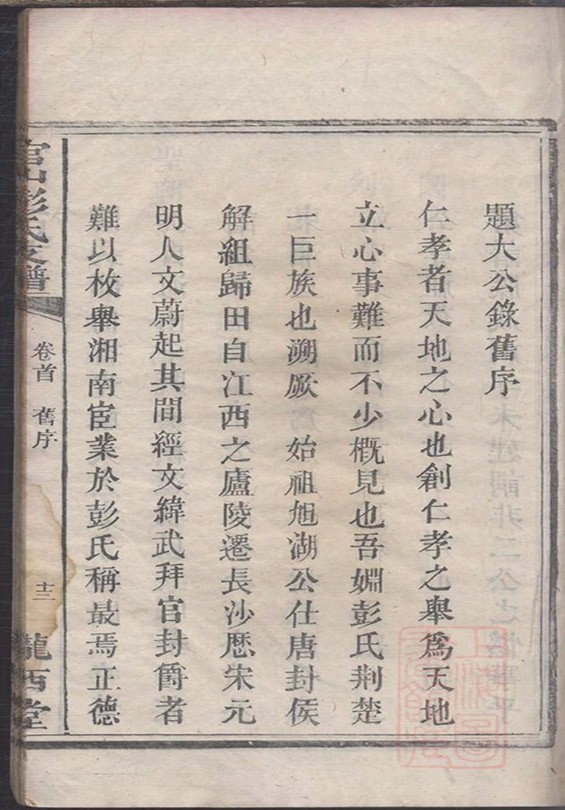 題大公錄舊序
仁孝者天地之心也創仁孝之舉爲天地
立心事難而不少概見也吾婣彭氏荆楚
一巨族也溯厥始祖旭湖公仕唐封侯
解組歸田自江西之廬陵遷長沙歷宋元
明人文蔚起其間經文緯武拜官封爵者
難以枚舉湘南宦業於彭氏稱最焉正德
官山彭氏支譜
卷首 舊序
十二
隴西堂